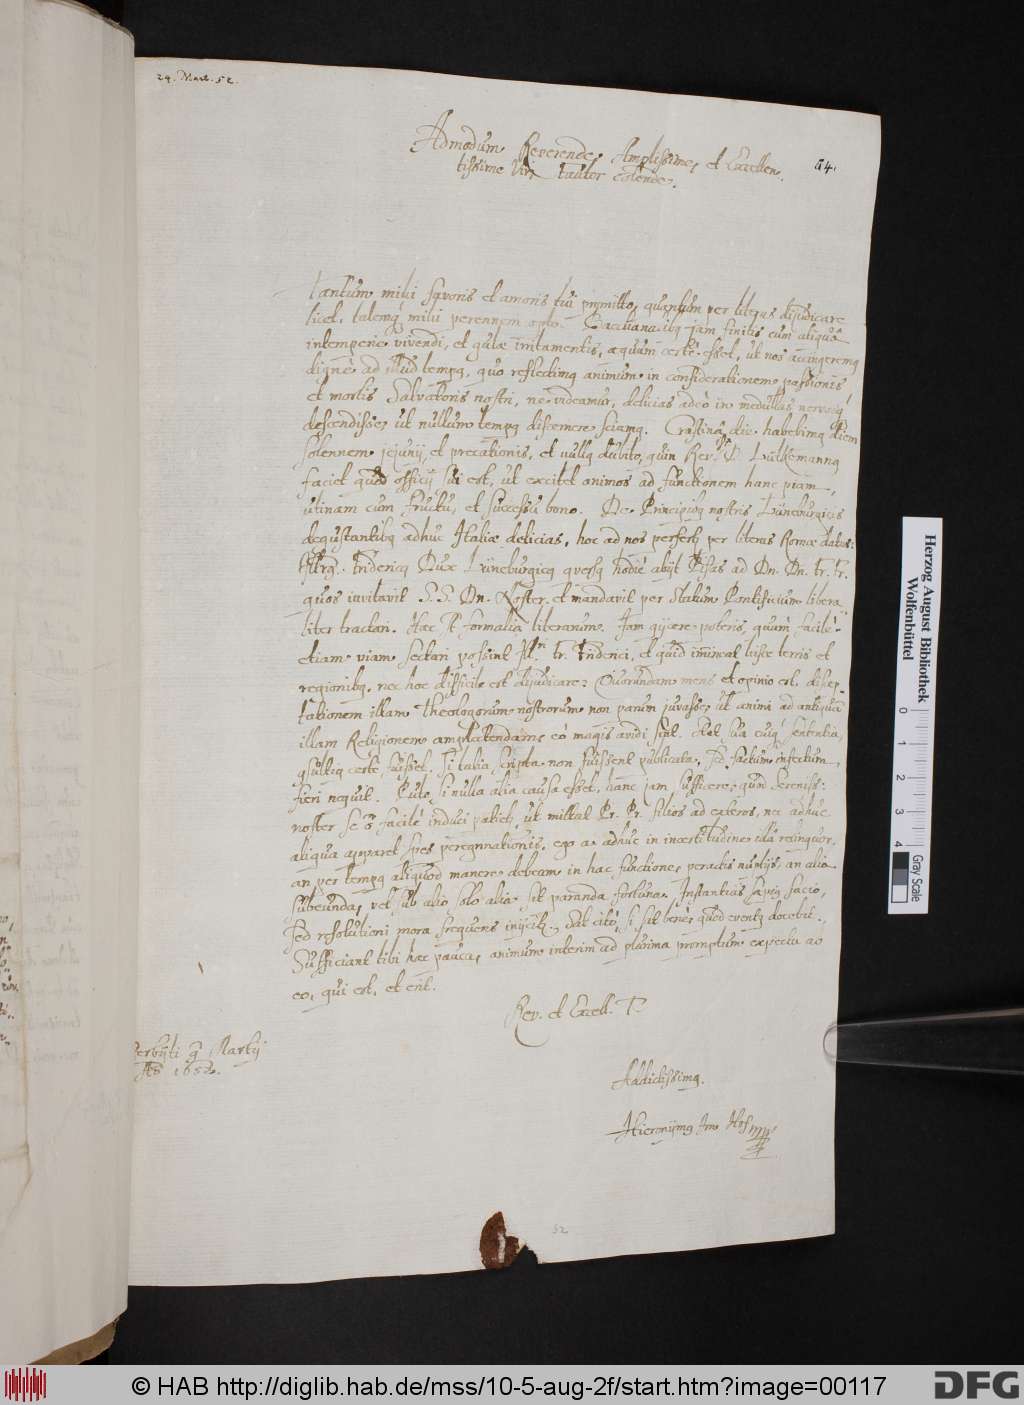 29. Mart. 52.
54.
Admodum Reverende, Amplissime, et Excellen
tissime Vir, fautor colende.
Tantum mihi favoris et amoris tui promitto, quantum per literas dijudicare
licet, talemq mihi perennem opto. Bacchanalibq jam finitis cum aliquâ
intemperie vivendi, et gulæ irritamentis, æquum certè esset, ut nos accingeremq
dignè ad illud tempq, quo reflectimq animum in considerationem passionis
et mortis Salvatoris nostri, ne videamur, delicias adeò in medullas nervosq
descendisse, ut nullum tempq discernere sciamq. Crastinâ die habebimq diem
solennem jejunij, et precationis, et nullq dubito, quin Rev. D. Lütkemannq
faciet quod officij sui est, ut excitet animos ad functionem hanc piam,
utinam cum fructu, et successu bono. De Principibq nostris Lüneburgicis
degustantibq adhuc Italiæ delicias, hoc ad nos perfertr per literas Romæ datas:
Illmq. Fridericq Dux Lüneburgicq hodiè abijt Pisas ad Dn. Dn. Fr. Fr.
quos invitavit S. S. Dn. Noster, et mandavit per Statum Pontificium libera
liter tractari. Hæc st formalia literarum. Jam conjicere poteris, quàm facilè
etiam viam sectari possint Illmi Fr. Friderici, et quid imineat hisce terris et
regionibq, nec hoc difficile est dijudicare: Quorundam mens et opinio est, discep-
tationem illam Theologorum nostrorum non parum juvasse, ut animi ad antiquam
illam Religionem amplectendam, eò magis avidi sint. Stet sua cuiq sententia,
consultiq certe fuisset, si talia scripta non fuissent publicata, sed factum infectum
fieri nequit. Puto, si nulla alia causa esset, hanc jam sufficere, quod Sereniss:
noster se non facilè induci patietr, ut mittat Pr. Pr. filios ad exteros, nec adhuc
aliqua apparet spes peregrinationis. ego a. adhuc in incertitudine illâ relinquor,
an per tempq aliquod manere debeam in hac functione, peractis nuptijs, an alia
subeunda, vel sub alio solo alia sit paranda fortuna. Instantias sæpiq facio,
sed resolutioni mora frequens inijcitr, Sat citò, si sit benè, quod eventq docebit.
Sufficiant tibi hæc pauca, animum interim ad plurima promptum expectu ab
eo, qui est, et erit.
Rev. et Excell. T.
Addictissimq.
Hieronymq Im Hof mpp
9 Martij
Aō 1652.
52
Herzog August Bibliothek
Wolfenbüttel
0 1 2 3 4
Gray Scale
© HAB http://diglib.hab.de/mss/10-5-aug-2f/start.htm?image=00117
DFG